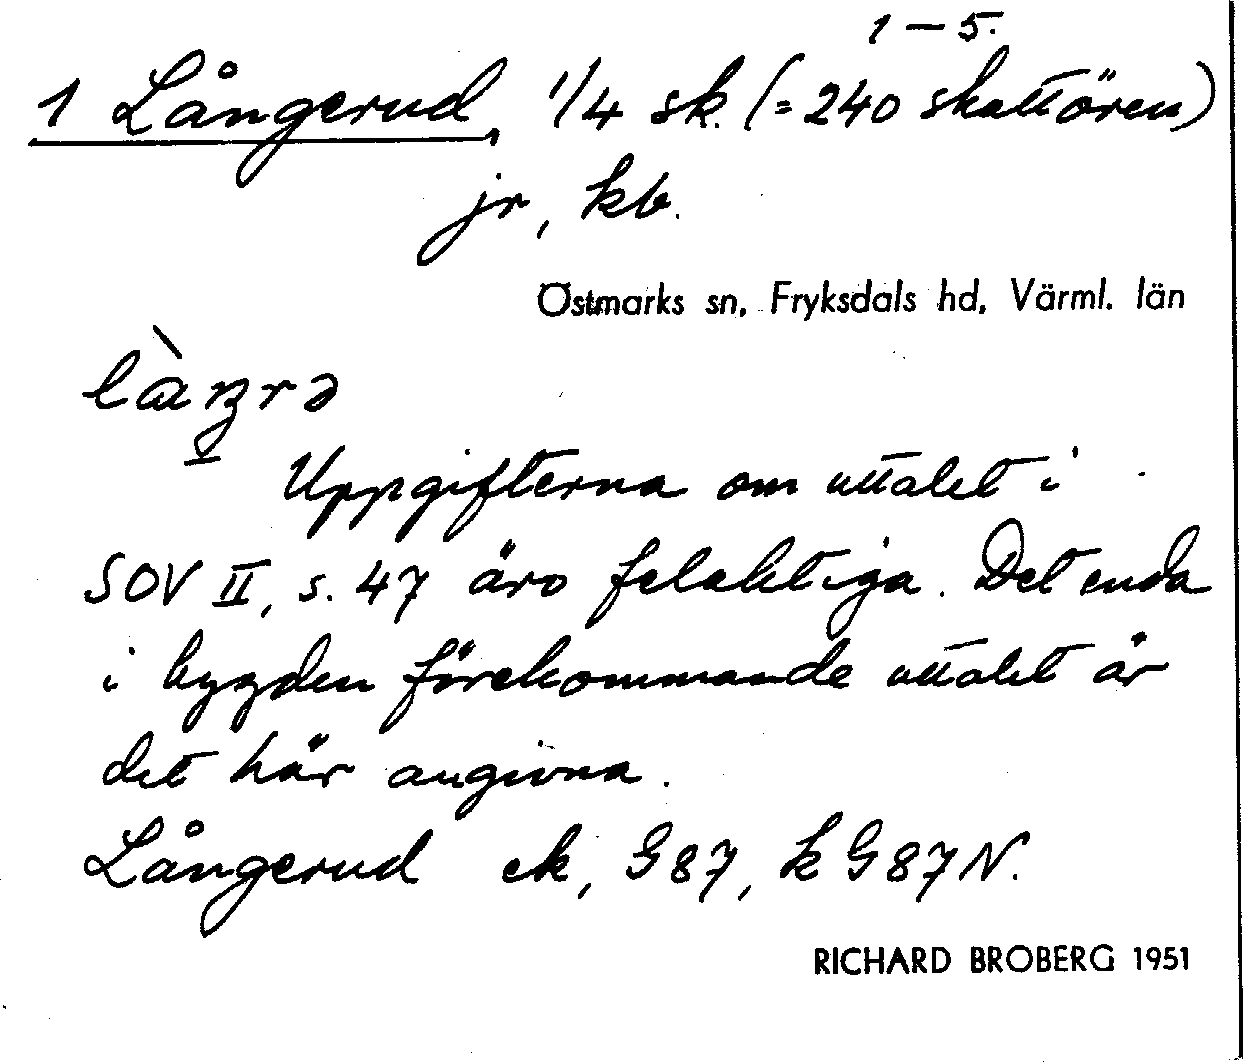 1–5.
1 Långerud, 1/4 sk. (=240 skattören)
jr, kb.
Östmarks sn, Fryksdals hd, Värml. län
Uppgifterna om uttalet i
SOV II, s. 47 äro felaktiga. Det enda
i bygden förekommande uttalet är
det här angivna.
Långerud ek, G87, k G87N.
RICHARD BROBERG 1951